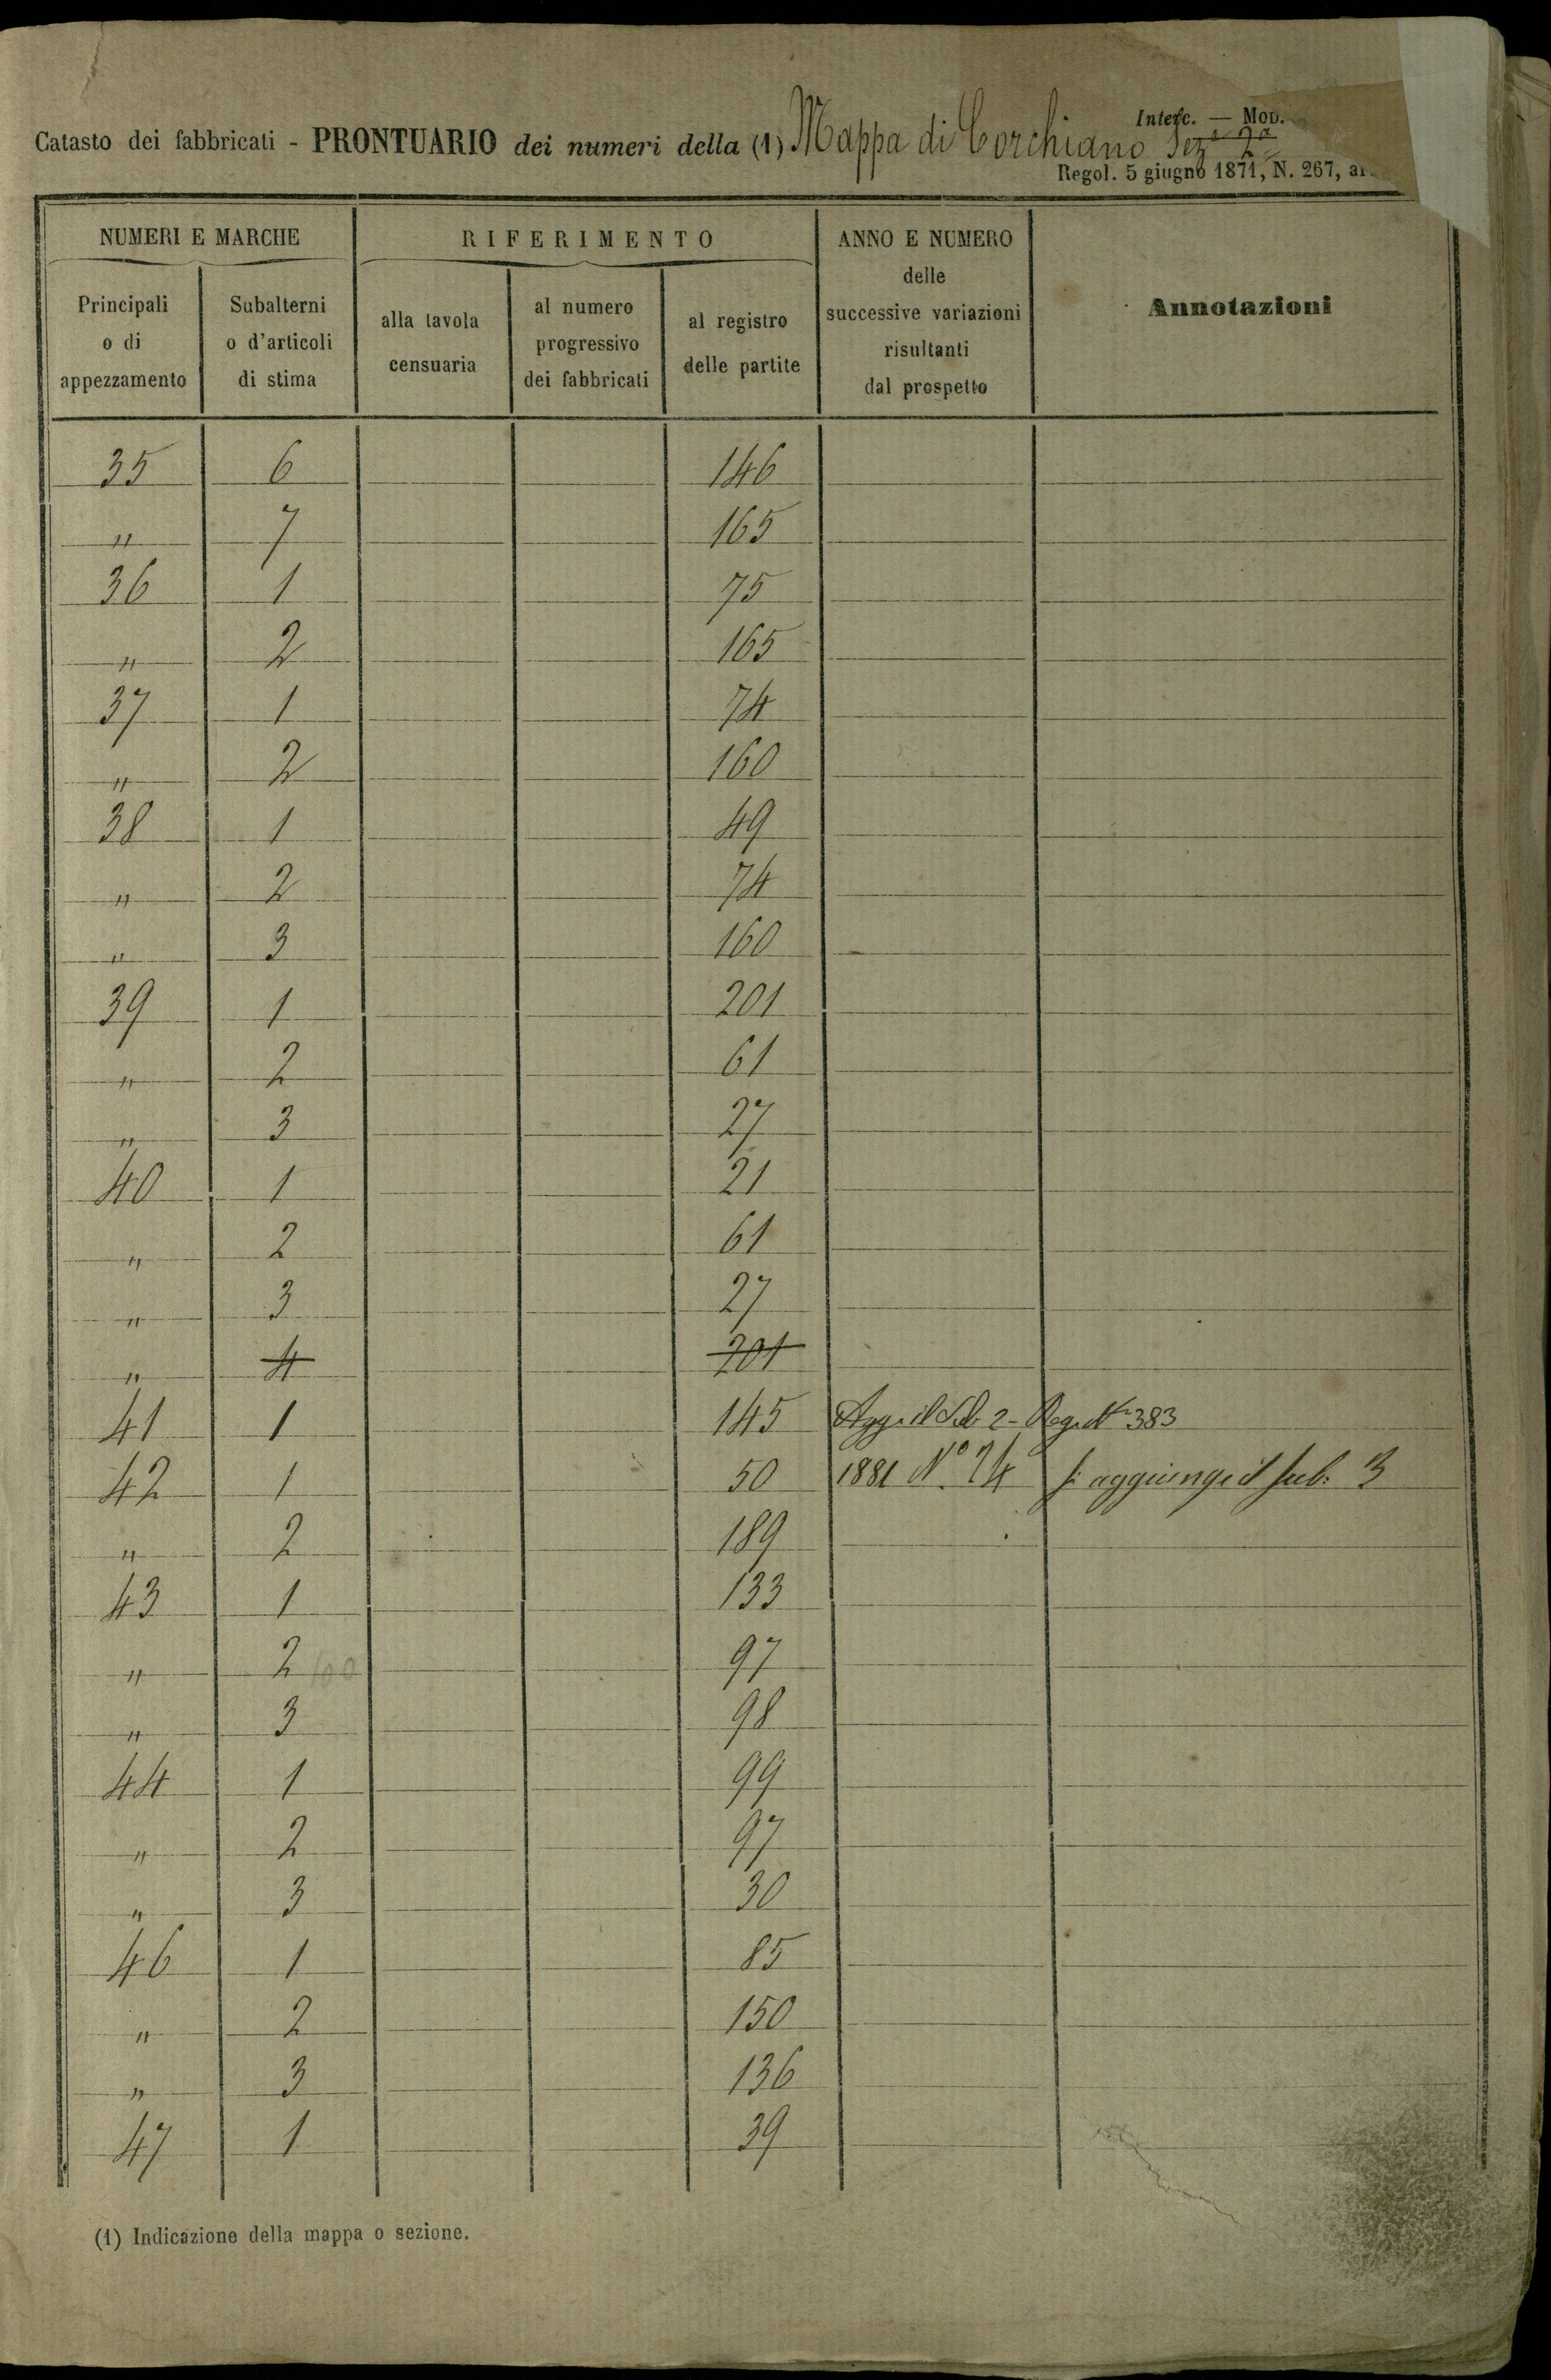 Interc. — Mod.
Catasto dei fabbricati - PRONTUARIO dei numeri della (1) Mappa di Corchiano Sezᵉ 2ª
Regol. 5 giugno 1871, N. 267, ar
NUMERI E MARCHE
RIFERIMENTO
ANNO E NUMERO
delle
successive variazioni
risultanti
dal prospetto
Annotazioni
Principali
o di
appezzamento
Subalterni
o d'articoli
di stima
alla tavola
censuaria
al numero
progressivo
dei fabbricati
al registro
delle partite
35 6 146
" 7 165
36 1 75
" 2 165
37 1 74
" 2 160
38 1 49
" 2 74
" 3 160
39 1 201
" 2 61
" 3 27
40 1 21
" 2 61
" 3 27
" 4 201
41 1 145 Agge il Sub 2 - Reg. Nº 383
42 1 50 1881 Nº 24 si aggiunge il sub: 3
" 2 189
43 1 133
" 2 97
" 3 98
44 1 99
" 2 97
" 3 30
46 1 85
" 2 150
" 3 136
47 1 39
(1) Indicazione della mappa o sezione.